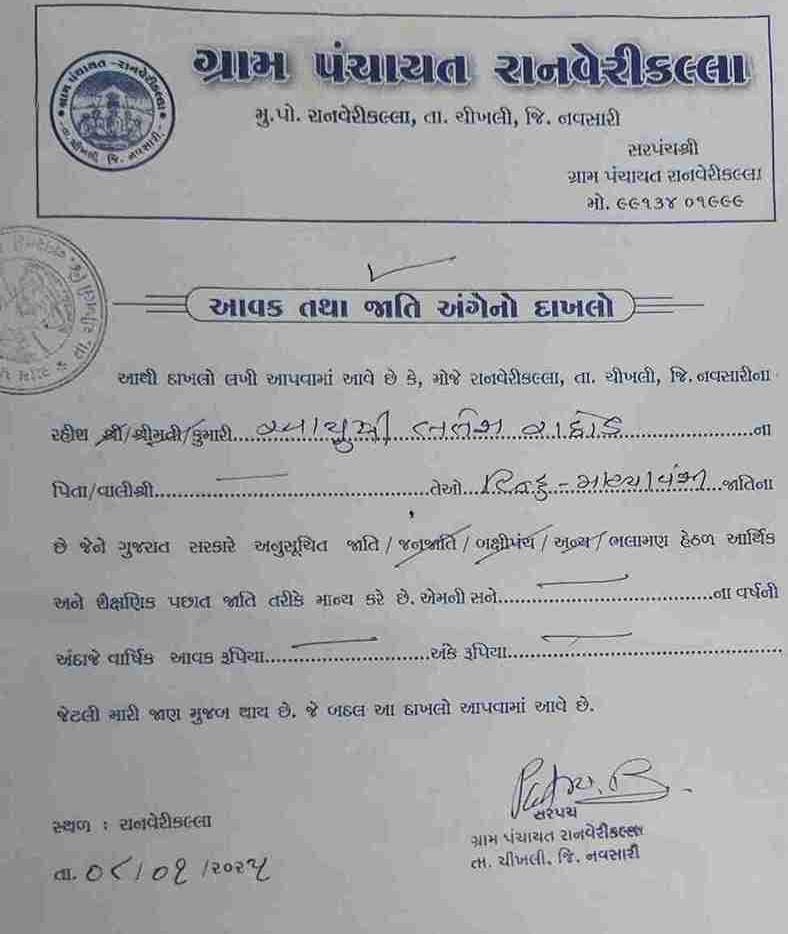 ગ્રામ પંચાયત રાનવેરીકલ્લા
ગ્રામ પંચાયત - રાનવેરીકલ્લા
તા. ચીખલી જિ. નવસારી
મુ.પો. રાનવેરીકલ્લા, તા. ચીખલી, જિ. નવસારી
સરપંચશ્રી
ગ્રામ પંચાયત રાનવેરીકલ્લા
મો. ૯૯૧૩૪ ૦૧૯૯૯
આવક તથા જાતિ અંગેનો દાખલો
આથી દાખલો લખી આપવામાં આવે છે કે, મોજે રાનવેરીકલ્લા, તા. ચીખલી, જિ. નવસારીના
રહીશ શ્રી/શ્રીમતી/કુમારી................ રાઠોડ................ના
પિતા/વાલીશ્રી................તેઓ હિન્દુ - મહ્યાવંશી જાતિના
છે જેને ગુજરાત સરકારે અનુસૂચિત જાતિ / જનજાતિ / બક્ષીપંચ / અન્ય / ભલામણ હેઠળ આર્થિક
અને શૈક્ષણિક પછાત જાતિ તરીકે માન્ય કરે છે. એમની સને................ના વર્ષની
અંદાજે વાર્ષિક આવક રૂપિયા................અંકે રૂપિયા................
જેટલી મારી જાણ મુજબ થાય છે. જે બદલ આ દાખલો આપવામાં આવે છે.
સરપંચ
સ્થળ : રાનવેરીકલ્લા
ગ્રામ પંચાયત રાનવેરીકલ્લા
તા. ચીખલી, જિ. નવસારી
તા. ૦૮/૦૧/૨૦૨૫